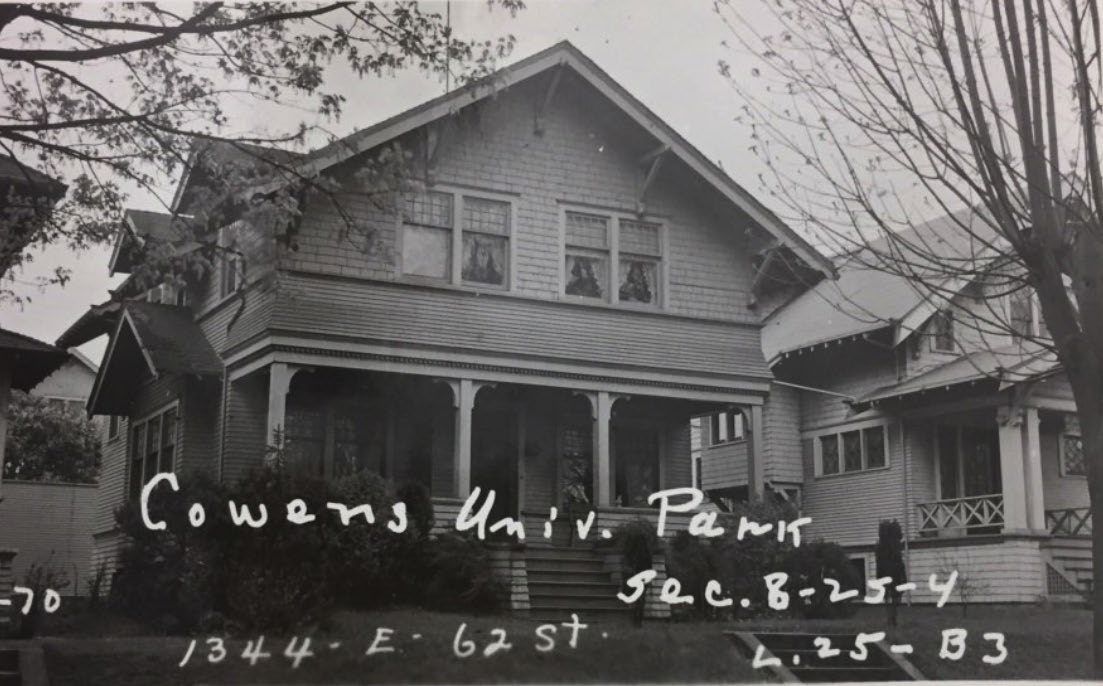 Cowens Univ. Park
Sec. 8-25-4
-70
1344- E- 62 St.
L. 25- B3